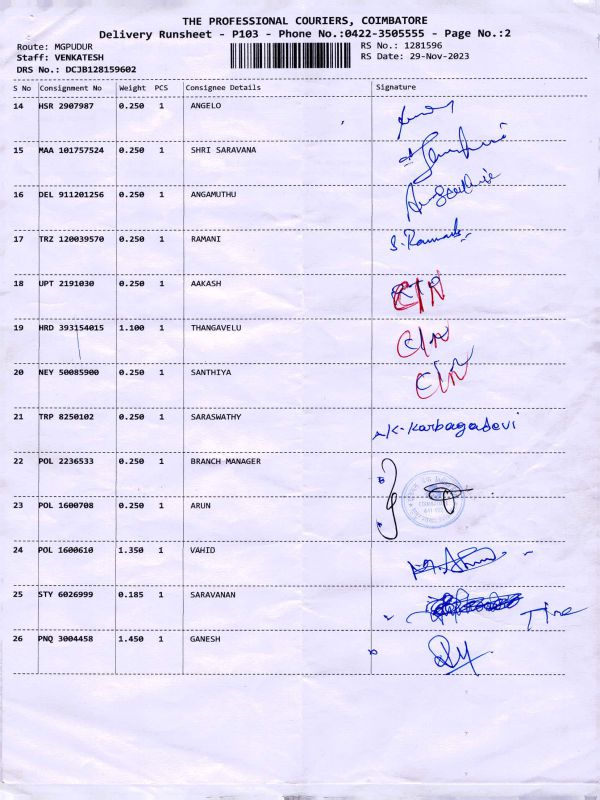 THE PROFESSIONAL COURIERS, COIMBATORE
Delivery Runsheet - P103 - Phone No.:0422-3505555 - Page No.:2
Route: MGPUDUR RS No.: 1281596
Staff: VENKATESH RS Date: 29-Nov-2023
DRS No.: DCJB128159602
S No Consignment No Weight PCS Consignee Details Signature
14 HSR 2907987 0.250 1 ANGELO
15 MAA 101757524 0.250 1 SHRI SARAVANA
16 DEL 911201256 0.250 1 ANGAMUTHU
17 TRZ 120039570 0.250 1 RAMANI
18 UPT 2191030 0.250 1 AAKASH
19 HRD 393154015 1.100 1 THANGAVELU
20 NEY 50085900 0.250 1 SANTHIYA
21 TRP 8250102 0.250 1 SARASWATHY K-Karbagadevi
22 POL 2236533 0.250 1 BRANCH MANAGER
23 POL 1600708 0.250 1 ARUN
24 POL 1600610 1.350 1 VAHID
25 STY 6026999 0.185 1 SARAVANAN
26 PNQ 3004458 1.450 1 GANESH